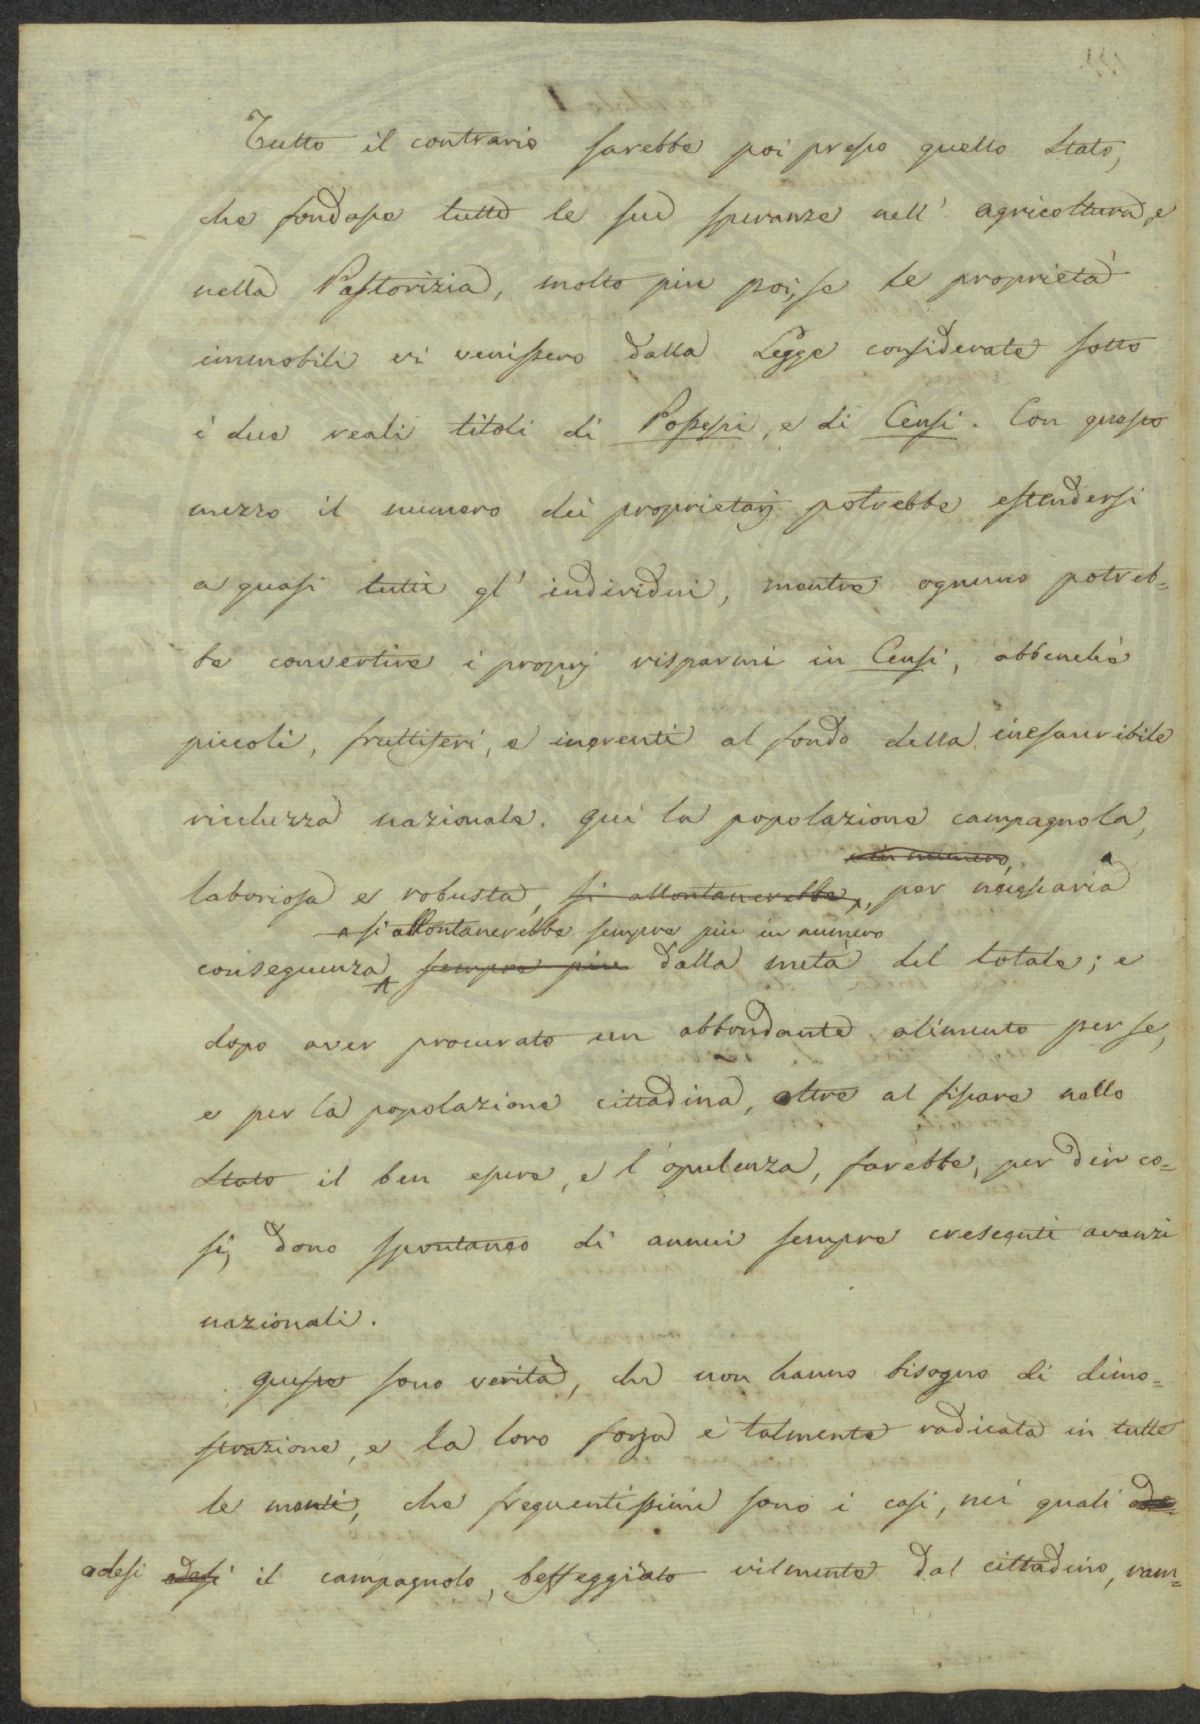 Tutto il contrario sarebbe poi presso quello Stato,
che fondasse tutte le sue speranze nell' agricoltura, e
nella Pastorizia, molto più poi, se le proprietà
immobili vi venissero dalla Legge considerate sotto
i due reali titoli di Possessi, e di Censi. Con questo
mezzo il numero dei proprietarj potrebbe estendersi
a quasi tutti gl' individui, mentre ognuno potreb=
be convertire i proprj risparmi in Censi, abbenchè
piccoli, fruttiferi, e inerenti al fondo della inesauribile
ricchezza nazionale. Qui la popolazione campagnola,
in numero,
laboriosa e robusta, si allontanerebbe, per necessaria
si allontanerebbe sempre più in numero
conseguenza sempre più dalla metà del totale; e
dopo aver procurato un abbondante alimento per se,
e per la popolazione cittadina, oltre al fissare nello
Stato il ben essere, e l' opulenza, farebbe, per dir co=
sì, dono spontaneo di annui sempre crescenti avanzi
nazionali.
Queste sono verità, che non hanno bisogno di dimo=
strazione, e la loro forza è talmente radicata in tutte
le menti, che frequentissimi sono i casi, nei quali
adesi il campagnolo, beffeggiato vilmente dal cittadino, ram=